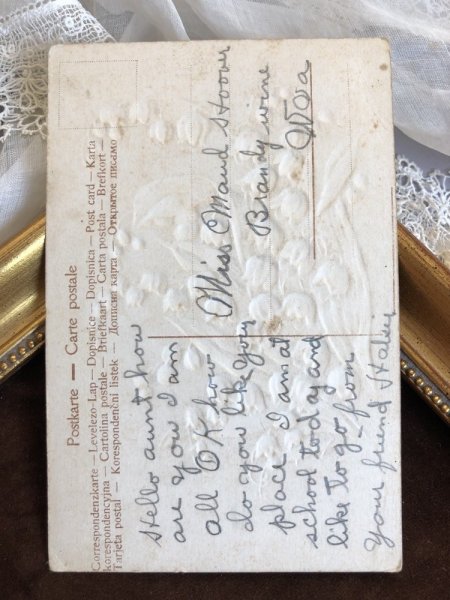 Postkarte — Carte postale
Correspondenzkarte — Levelezo-Lap — Dopisnice — Dopisnica — Post card — Karta
korespondencyjna — Cartolina postale — Briefkaart — Carta postala — Brefkort —
Tarjeta postal — Korespondenční lístek — Дописна карта — Открытое письмо
Hello aunt how
are you I am
all OK how
do you like your
place I am at
school today and
like to go from
your friend
Miss Maud Hoover
Brandywine
W Va